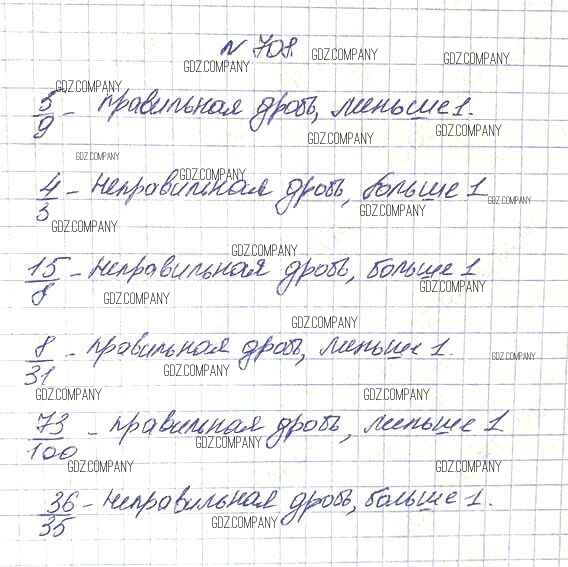 № 708.
GDZ.COMPANY GDZ.COMPANY GDZ.COMPANY
GDZ.COMPANY
5/9 - правильная дробь, меньше 1.
GDZ.COMPANY GDZ.COMPANY
GDZ.COMPANY GDZ.COMPANY
4/3 - неправильная дробь, больше 1
GDZ.COMPANY GDZ.COMPANY
GDZ.COMPANY
GDZ.COMPANY
15/8 - неправильная дробь, больше 1
GDZ.COMPANY GDZ.COMPANY
GDZ.COMPANY
8/31 - правильная дробь, меньше 1.
GDZ.COMPANY GDZ.COMPANY
GDZ.COMPANY GDZ.COMPANY
73/100 - правильная дробь, меньше 1
GDZ.COMPANY
GDZ.COMPANY GDZ.COMPANY
36/35 - неправильная дробь, больше 1.
GDZ.COMPANY